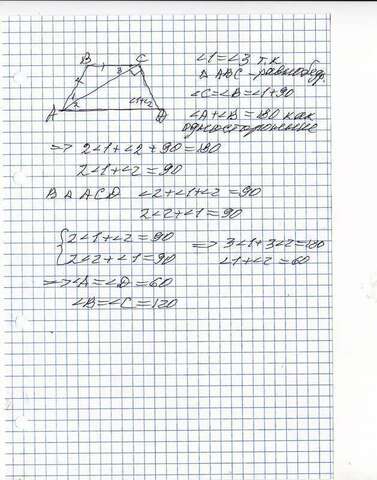 B 1 C
4 3
1
A 2 ∠1+∠2 D
∠1=∠3 т.к
△ABC - равнобедр.
∠C=∠B=∠1+90
∠A+∠B=180 как
односторонние
=> 2∠1+∠2+90=180
2∠1+∠2=90
В △ ACD ∠2+∠1+∠2=90
2∠2+∠1=90
{2∠1+∠2=90
2∠2+∠1=90 => 3∠1+3∠2=180
∠1+∠2=60
=> ∠A=∠D=60
∠B=∠C=120